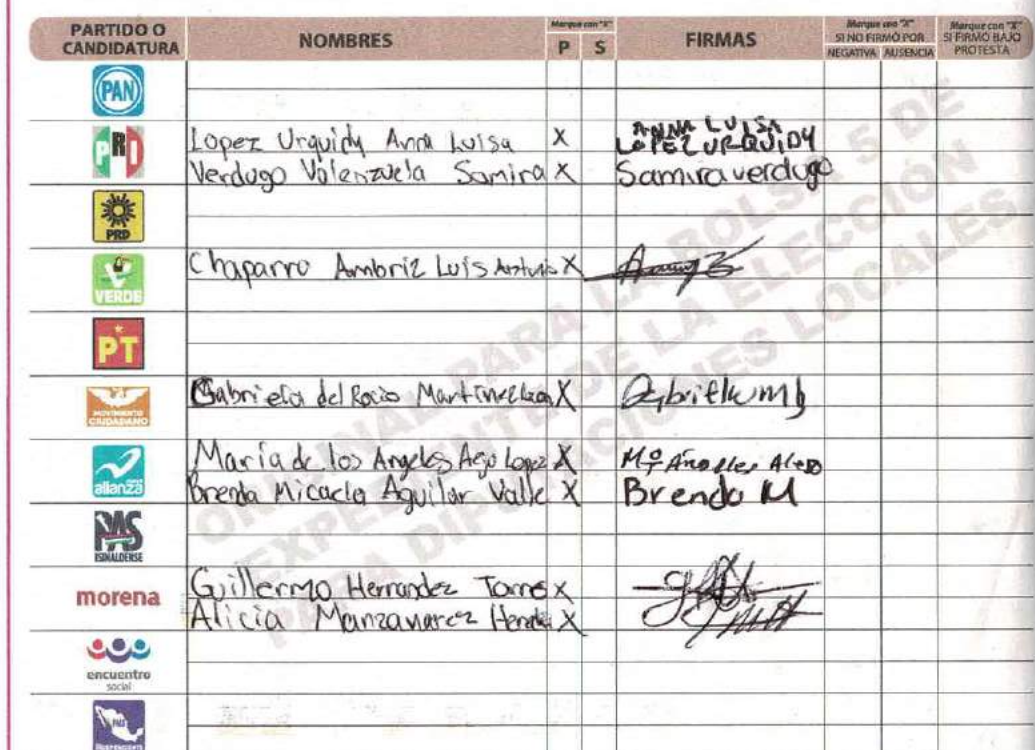 PARTIDO O CANDIDATURA NOMBRES Marque con "X" P S FIRMAS Marque con "X" SI NO FIRMÓ POR NEGATIVA AUSENCIA Marque con "X" SI FIRMÓ BAJO PROTESTA
PAN
PRI Lopez Urquidy Anna Luisa X ANNA LUISA LOPEZ URQUIDY
Verdugo Valenzuela Samira X Samira verdugo
PRD
VERDE Chaparro Ambriz Luis Antonio X
PT
MOVIMIENTO CIUDADANO Gabriela del Rocio Martinez X
alianza Maria de los Angeles Lopez X Mª
Brenda Micaela Aguilar Valle X Brenda M
PAS SINALOENSE
morena Guillermo Hernandez Torres X
Alicia Manzanarez X
encuentro social
PAIS INDEPENDIENTE
ORIGINAL PARA LA BOLSA 5 DE
EXPEDIENTE DE LA ELECCIÓN
PARA DIPUTACIONES LOCALES